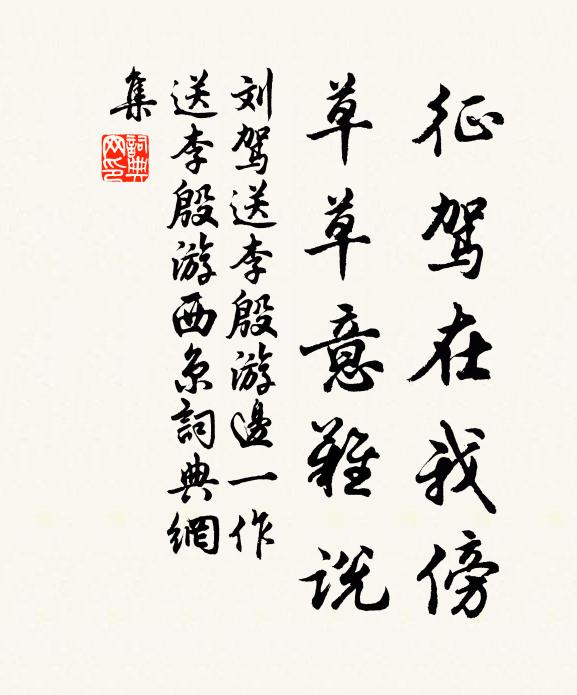 征驾在我傍
草草意難说
刘驾送李殷游邊一作
送李殷游西京詞典網
集
詞典
网印